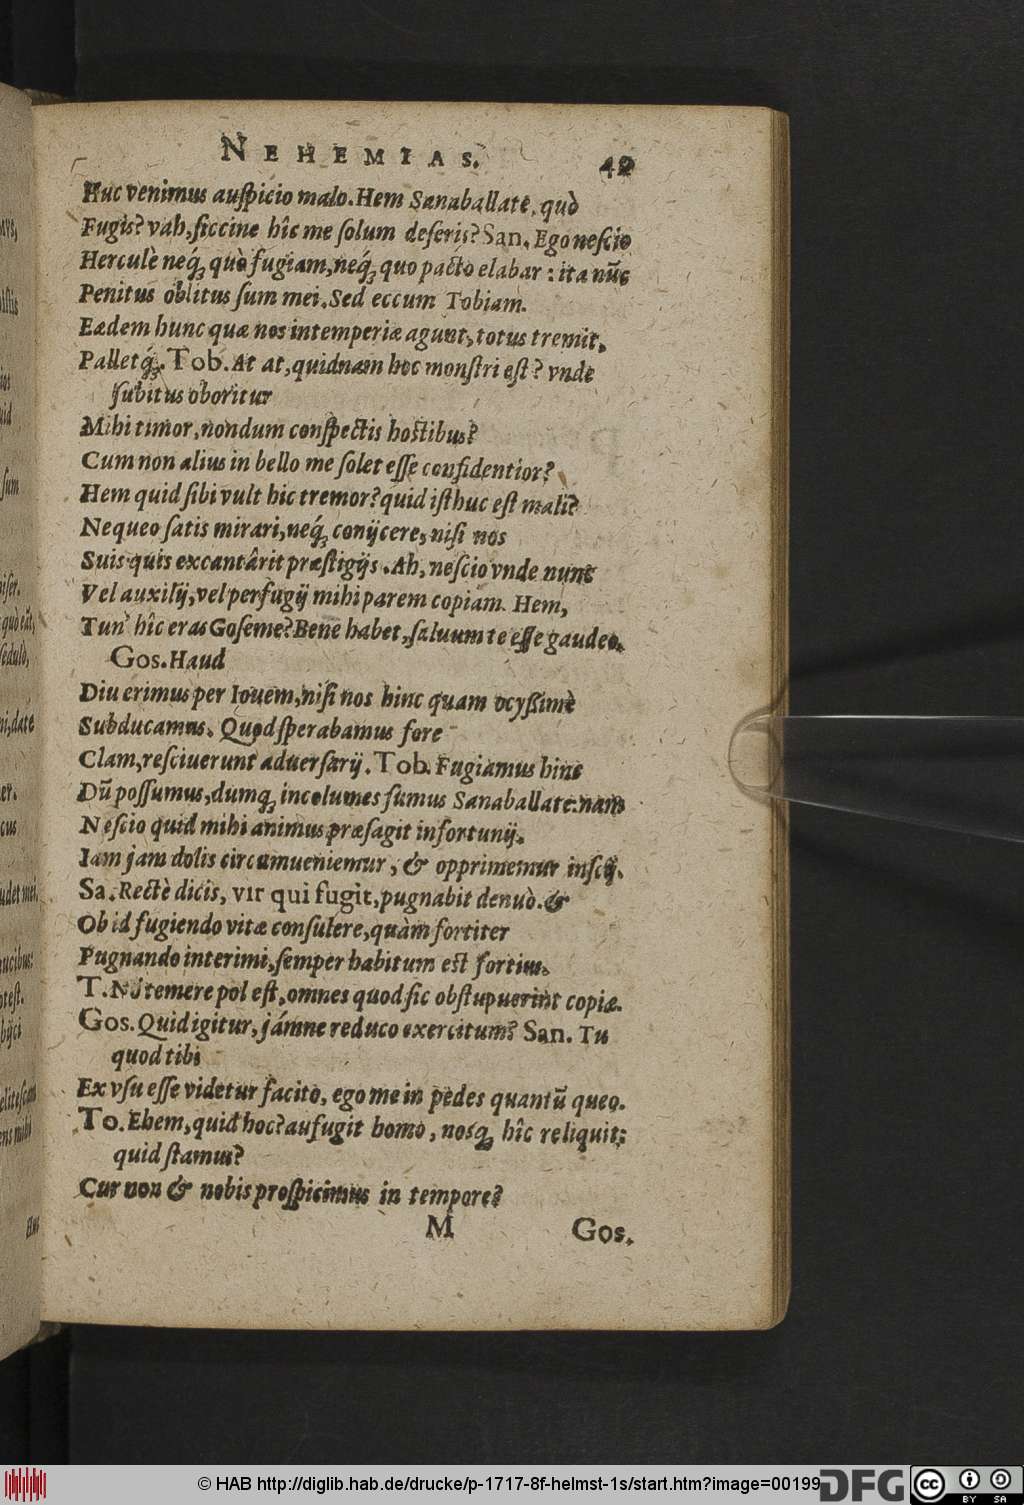 NEHEMIAS. 49
Huc venimus auſpicio malo. Hem Sanaballate, quò
Fugis? vah, ſiccine hîc me ſolum deſeris? San. Ego neſcio
Herculè neq́ꝫ quò fugiam, neq́ꝫ quo pacto elabar: ita nũc
Penitus oblitus ſum mei. Sed eccum Tobiam.
Eædem hunc quæ nos intemperiæ agunt, totus tremit,
Palletq́ꝫ. Tob. At at, quidnam hoc monſtri eſt? vnde
ſubitus oboritur
Mihi timor, nondum conſpectis hoſtibus?
Cum non alius in bello me ſolet eſſe confidentior?
Hem quid ſibi vult hic tremor? quid iſthuc eſt mali?
Nequeo ſatis mirari, neq́ꝫ conijcere, niſi nos
Suis quis excantârit præſtigijs. Ah, neſcio vnde nunc
Vel auxilij, vel perfugij mihi parem copiam. Hem,
Tun' hîc eras Goſeme? Bene habet, ſaluum te eſſe gaudeo.
Gos. Haud
Diu erimus per Iouem, niſi nos hinc quam ocyßimè
Subducamus. Quod ſperabamus fore
Clam, reſciuerunt aduerſarij. Tob. Fugiamus hinc
Dũ poſſumus, dumqꝫ incolumes ſumus Sanaballate: nam
Neſcio quid mihi animus præſagit infortunij.
Iam jam dolis circumueniemur, & opprimemur inſcij.
Sa. Rectè dicis, vir qui fugit, pugnabit denuò. &
Ob id fugiendo vitæ conſulere, quàm fortiter
Pugnando interimi, ſemper habitum est fortius.
T. Nõ temere pol eſt, omnes quod ſic obſtupuerint copiæ.
Gos. Quid igitur, jámne reduco exercitum? San. Tu
quod tibi
Ex vſu eſſe videtur facito, ego me in pedes quantũ queo.
To. Ehem, quid hoc? aufugit homo, nosqꝫ hîc reliquit;
quid ſtamus?
Cur non & nobis proſpicimus in tempore?
M Gos.
© HAB http://diglib.hab.de/drucke/p-1717-8f-helmst-1s/start.htm?image=00199
DFG
cc BY SA